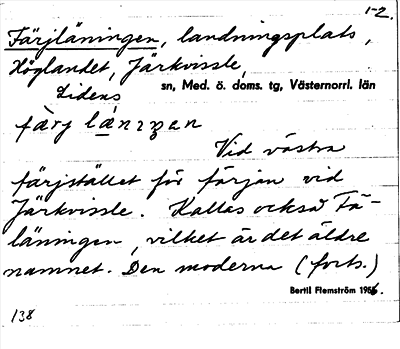 1-2.
Färjläningen, landningsplats,
Höglandet, Järkvissle,
Lidens sn, Med. ö. doms. tg, Västernorrl. län
färj länıŋen
Vid västra
färjstället för färjan vid
Järkvissle. Kallas också Fä-
läningen, vilket är det äldre
namnet. Den moderna (forts.)
Bertil Flemström 1966.
138